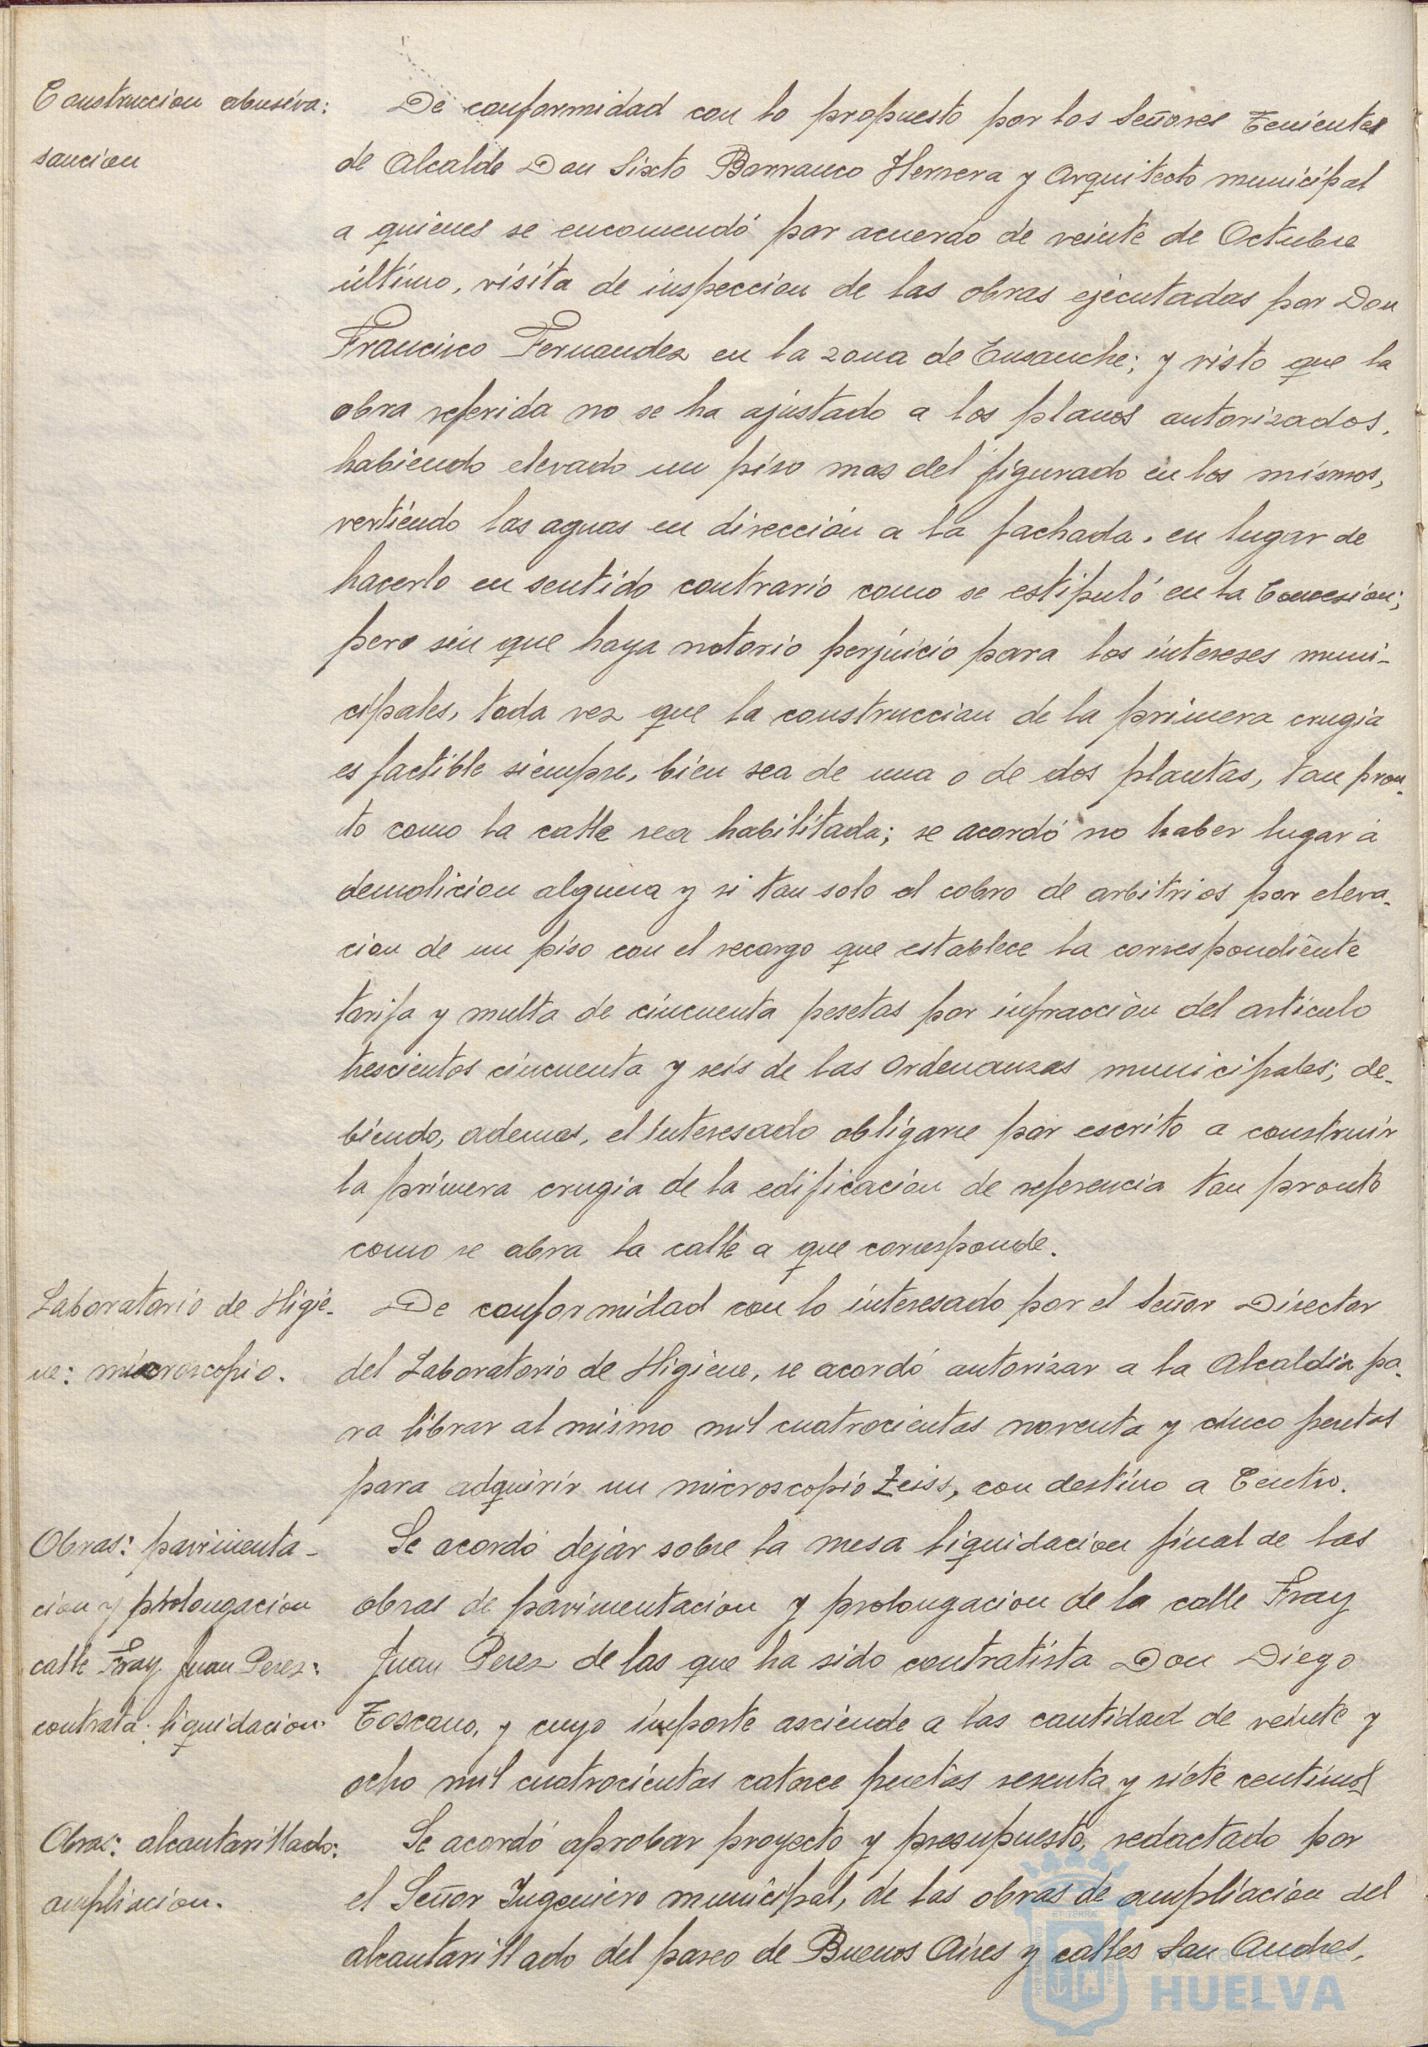 Construccion abusiva:
sancion
De conformidad con lo propuesto por los Señores Tenientes
de Alcalde Don Sixto Barranco Herrera y Arquitecto municipal
a quienes se encomendó por acuerdo de veinte de Octubre
último, visita de inspeccion de las obras ejecutadas por Don
Francisco Fernandez en la zona de Ensanche; y visto que la
obra referida no se ha ajustado a los planos autorizados,
habiendo elevado un piso mas del figurado en los mismos,
vertiendo las aguas en dirección a la fachada, en lugar de
hacerlo en sentido contrario como se estipuló en la Concesion;
pero sin que haya notorio perjuicio para los intereses muni-
cipales, toda vez que la construccion de la primera crugia
es factible siempre, bien sea de una o de dos plantas, tan pron-
to como la calle sea habilitada; se acordó no haber lugar á
demolicion alguna y si tan solo el cobro de arbitrios por eleva-
cion de un piso con el recargo que establece la correspondiente
tarifa y multa de cincuenta pesetas por infracción del artículo
trescientos cincuenta y seis de las Ordenanzas municipales; de-
biendo, ademas, el interesado obligarse por escrito a construir
la primera crugia de la edificación de referencia tan pronto
como se abra la calle a que corresponde.
Laboratorio de Higie-
ne: microscopio.
De conformidad con lo interesado por el Señor Director
del Laboratorio de Higiene, se acordó autorizar a la Alcaldia pa-
ra librar al mismo mil cuatrocientas noventa y cinco pesetas
para adquirir un microscopio Zeiss, con destino a Centro.
Obras: pavimenta-
cion y prolongacion
calle Fray Juan Perez:
contrata: liquidacion.
Se acordó dejar sobre la mesa liquidacion final de las
obras de pavimentacion y prolongacion de la calle Fray
Juan Perez de las que ha sido contratista Don Diego
Toscano, y cuyo importe asciende a las cantidad de veinte y
ocho mil cuatrocientas catorce pesetas sesenta y siete centimos
Obras: alcantarillado:
ampliacion.
Se acordó aprobar proyecto y presupuesto, redactado por
el Señor Ingeniero municipal, de las obras de ampliacion del
alcantarillado del paseo de Buenos Aires y calles San Andres,
Ayuntamiento de
HUELVA